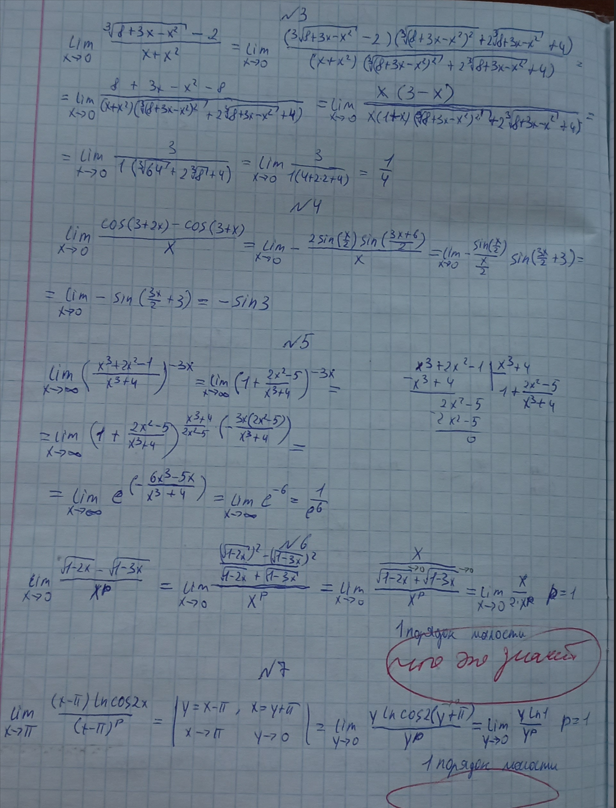 №3
lim x→0 (∛(8+3x-x²) - 2)/(x+x²) = lim x→0 ((∛(8+3x-x²) - 2)(∛(8+3x-x²)² + 2∛(8+3x-x²) + 4))/((x+x²)(∛(8+3x-x²)² + 2∛(8+3x-x²) + 4)) =
= lim x→0 (8 + 3x - x² - 8)/((x+x²)(∛(8+3x-x²)² + 2∛(8+3x-x²) + 4)) = lim x→0 (x(3-x))/(x(1+x)(∛(8+3x-x²)² + 2∛(8+3x-x²) + 4)) =
= lim x→0 3/(1(∛64 + 2∛8 + 4)) = lim x→0 3/(1(4+2·2+4)) = 1/4
№4
lim x→0 (cos(3+2x) - cos(3+x))/x = lim x→0 - (2sin(x/2) sin((3x+6)/2))/x = lim x→0 - (sin(x/2))/(x/2) sin(3x/2 + 3) =
= lim x→0 - sin(3x/2 + 3) = - sin3
№5
lim x→∞ ((x³+2x²-1)/(x³+4))^(-3x) = lim x→∞ (1 + (2x²-5)/(x³+4))^(-3x) =
x³+2x²-1 | x³+4
- x³+4 1 + (2x²-5)/(x³+4)
2x²-5
- 2x²-5
0
= lim x→∞ (1 + (2x²-5)/(x³+4))^((x³+4)/(2x²-5) (-3x(2x²-5)/(x³+4))) =
= lim x→∞ e^(-(6x³-5x)/(x³+4)) = lim x→∞ e^(-6) = 1/e⁶
№6
lim x→0 (√(1-2x) - √(1-3x))/x^p = lim x→0 (((√(1-2x))² - (√(1-3x))²)/(√(1-2x) + √(1-3x)))/x^p = lim x→0 (x/(√(1-2x)→0 + √(1-3x)→0))/x^p = lim x→0 x/(2·x^p) p=1
1 порядок малости
что это значит
№7
lim x→π ((x-π) ln cos2x)/(x-π)^p = | y=x-π, x=y+π x→π y→0 | = lim y→0 (y ln cos2(y+π))/y^p = lim y→0 (y ln1)/y^p p=1
1 порядок малости